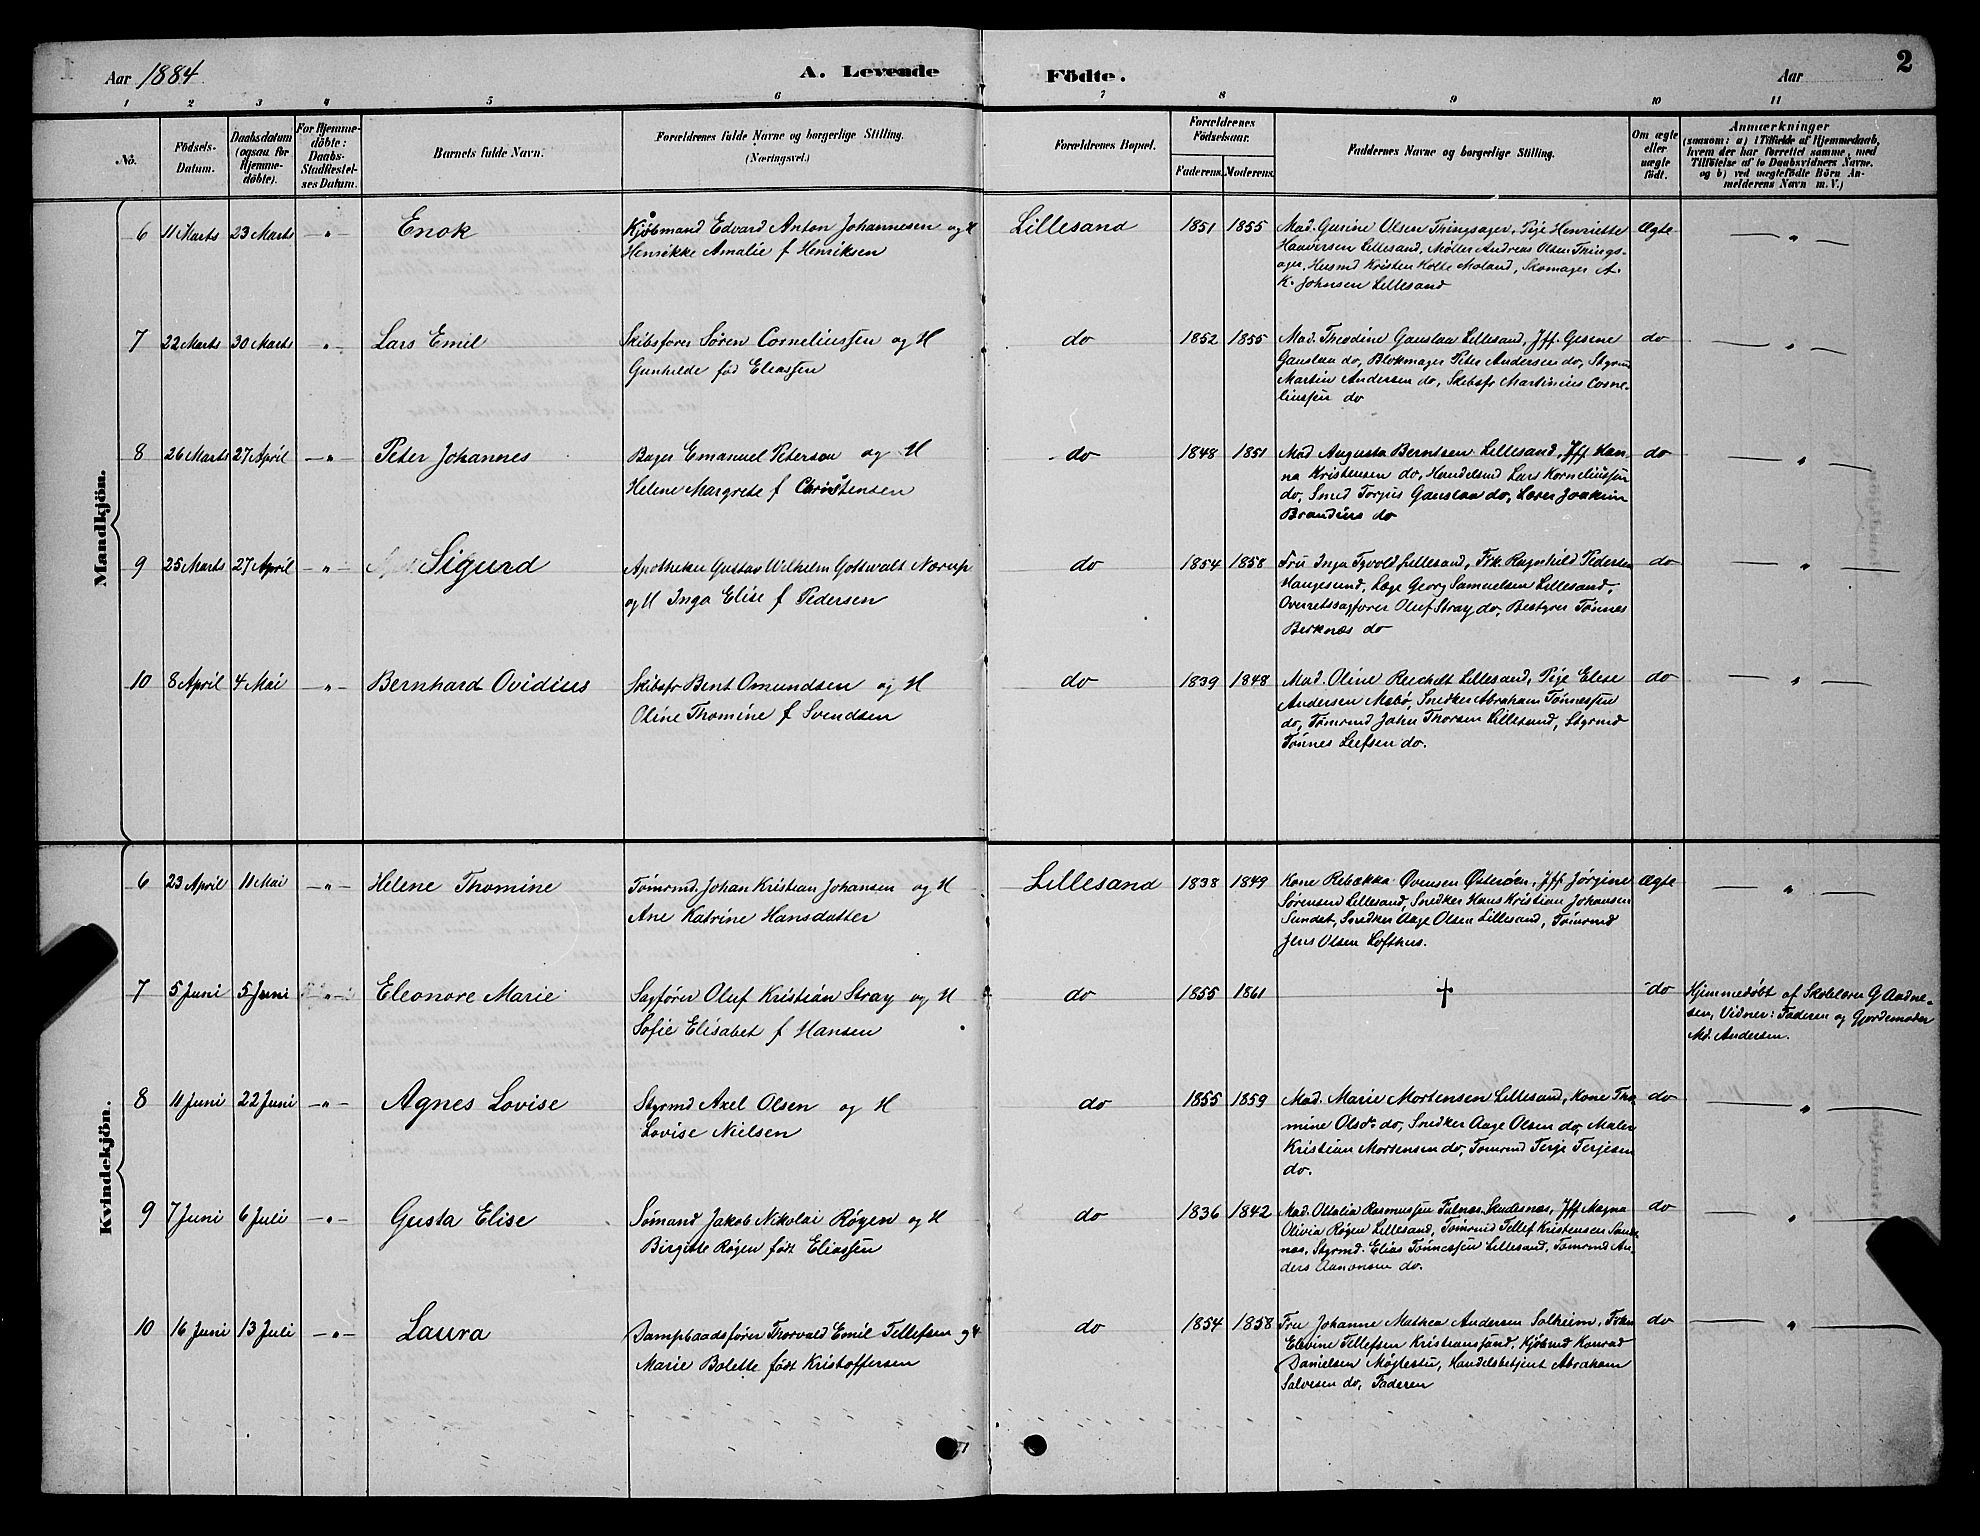 Aar 1884. A. Levende Födte. Aar 2
1 2 3 4 5 6 7 8 9 10 11
No.
Födsels-Datum.
Daabsdatum (ogsaa for Hjemme-döbte).
For Hjemme-döbte: Daabs-Stadfæstel-ses Datum.
Barnets fulde Navn.
Forældrenes fulde Navne og borgerlige Stilling. (Næringsvei.)
Forældrenes Bopæl.
Forældrenes Födselsaar.
Faderens. Moderens.
Faddernes Navne og borgerlige Stilling.
Om ægte eller uægte födt.
Anmærkninger
(saasom: a) i Tilfælde af Hjemmedaab, hvem der har forrettet samme, med Tilföielse af to Daabsvidners Navne. og b) ved uægtefödte Börn An-melderens Navn m. V.)
Mandkjön.
6 11 Marts 23 Marts -"- Enok Kjøbmand Edvard Anton Johannesen og H Lillesand 1851 1855 Mad. Gurine Olsen Thingsager, Pige Henriette Ægte — " —
Henrikke Amalie f Henriksen Haaversen Lillesand, Møller Andreas Olsen Things-
ager, Husmd Kristen Holte Moland, Skomager A.
K. Johnsen Lillesand
7 22 Marts 30 Marts -"- Lars Emil Skibsfører Søren Corneliussen og H do 1852 1855 Mad. Thodine Gauslaa Lillesand, Jff Gesine do — " —
Gunhilde fød Eliassen Gauslaa do, Blokmager Peter Andersen do, Styrm
Martin Andersen do, Skibsfr Martinius Corne-
liussen do
8 26 Marts 27 April -"- Peter Johannes Bager Emanuel Peterson og H do 1848 1851 Mad Augusta Berntsen Lillesand, Jff Han- do — " —
Helene Margrete f Christensen na Kristensen do, Handelsmd Lars Korneliussen
do, Smed Torjus Gauslaa do, Lærer Joakim
Brandius do
9 25 Marts 27 April -"- Sigurd Apotheker Gustav Wilhelm Gottwalt Nørup do 1854 1858 Fru Inga Tyvold Lillesand, Frk. Ragnhild Pedersen do — " —
og H Inga Elise f Pedersen Haugesund, Læge Georg Samuelsen Lillesand,
Overretssagfører Oluf Stray do, Bestyrer Tønnes
Berknæs do
10 8 April 4 Mai -"- Bernhard Ovidius Skibsfr Bent Omundsen og H do 1839 1848 Mad. Oline Reichelt Lillesand, Pige Elise do — " —
Oline Thomine f Svendsen Andersen Mæbø, Snedker Abraham Tønnessen
do, Tømrmd John Thorsen Lillesand, Styrmd
Tønnes Leefsen do.
Kvindekjön.
6 23 April 11 Mai -"- Helene Thomine Tømrmd. Johan Kristian Johansen og H Lillesand 1838 1849 Kone Rebækka Øvensen Østerøen, Jff Jørgine Ægte — " —
Ane Katrine Hansdatter Sørensen Lillesand, Snedker Hans Kristian Johansen
Sundet, Snedker Aage Olsen Lillesand, Tømrmd
Jens Olsen Lofthus.
7 5 Juni 5 Juni -"- Eleonore Marie Sagfører Oluf Kristian Stray og H do 1855 1861 † do Hjemmedøbt af Skolelærer G Aadne-
Sofie Elisabet f Hansen sen, Vidner: Faderen og Gjordemoder
Md. Andersen.
8 11 Juni 22 Juni -"- Agnes Lovise Styrmd Axel Olsen og H do 1855 1859 Mad. Marie Mortensen Lillesand, Kone Tho- do — " —
Lovise Nielsen mine Olsdr do, Snedker Aage Olsen do, Maler
Kristian Mortensen do, Tømrmd Terje Terjesen
do.
9 7 Juni 6 Juli -"- Gusta Elise Sømand Jakob Nikolai Røgen og H do 1836 1842 Mad. Ottalia Rasmussen Falnæs Skudesnæs, Jff Magna do — " —
Birgitte Røgen født Eliassen Olivia Røgen Lillesand, Tømrmd Tellef Kristensen
næs, Styrmd. Elias Tønnessen Lillesand, Tømrmd An-
ders Aanonsen do.
10 16 Juni 13 Juli -"- Laura Dampbaadsfører Thorvald Emil Tellefsen og H do 1854 1858 Fru Johanne Mathea Andersen Solheim, Frkn do — " —
Marie Bolette født Kristoffersen Elevine Tellefsen Kristianssund, Kjøbmd Konrad
Danielsen Møglestu, Handelsbetjent Abraham
Salvesen do, Faderen